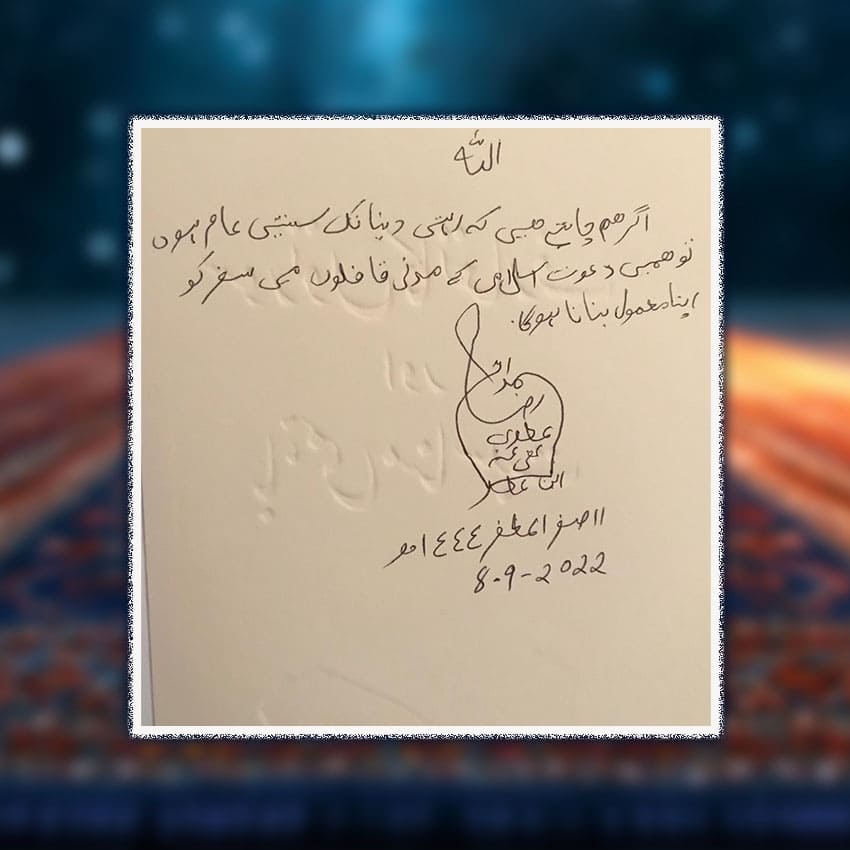 اللہ
اگر ہم چاہتے ہیں کہ رہتی دنیا تک سنتیں عام ہوں
تو ہمیں دعوت اسلامی کے مدنی قافلوں میں سفر کو
اپنا معمول بنانا ہوگا۔
رضا
عطاری
عفی عنہ
ابن عطار
١١ صفر المظفر ١٤٤٤ھ
8-9-2022